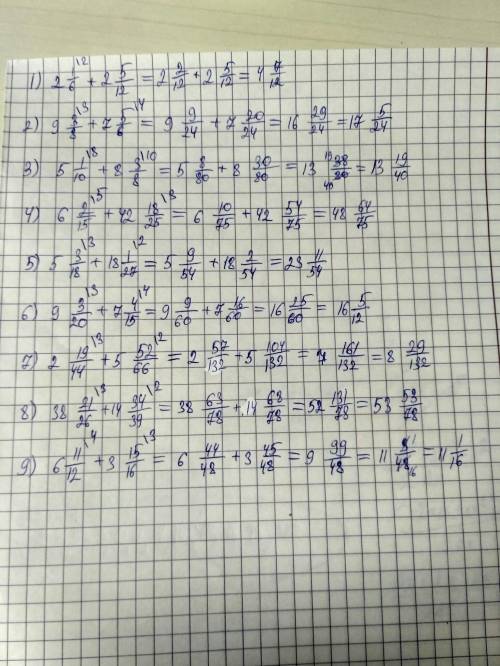 1) 2 1/6 \2 + 2 5/12 = 2 2/12 + 2 5/12 = 4 7/12
2) 9 3/8 \3 + 7 5/6 \4 = 9 9/24 + 7 20/24 = 16 29/24 = 17 5/24
3) 5 1/10 \8 + 8 3/8 \10 = 5 8/80 + 8 30/80 = 13 38/80 19 40 = 13 19/40
4) 6 2/15 \5 + 42 18/25 \3 = 6 10/75 + 42 54/75 = 48 64/75
5) 5 3/18 \3 + 18 1/27 \2 = 5 9/54 + 18 2/54 = 23 11/54
6) 9 3/20 \3 + 7 4/15 \4 = 9 9/60 + 7 16/60 = 16 25/60 = 16 5/12
7) 2 19/44 \3 + 5 52/66 \2 = 2 57/132 + 5 104/132 = 7 161/132 = 8 29/132
8) 38 21/26 \3 + 14 34/39 \2 = 38 63/78 + 14 68/78 = 52 131/78 = 53 53/78
9) 6 11/12 \4 + 3 15/16 \3 = 6 44/48 + 3 45/48 = 9 99/48 = 11 3/48 1 16 = 11 1/16